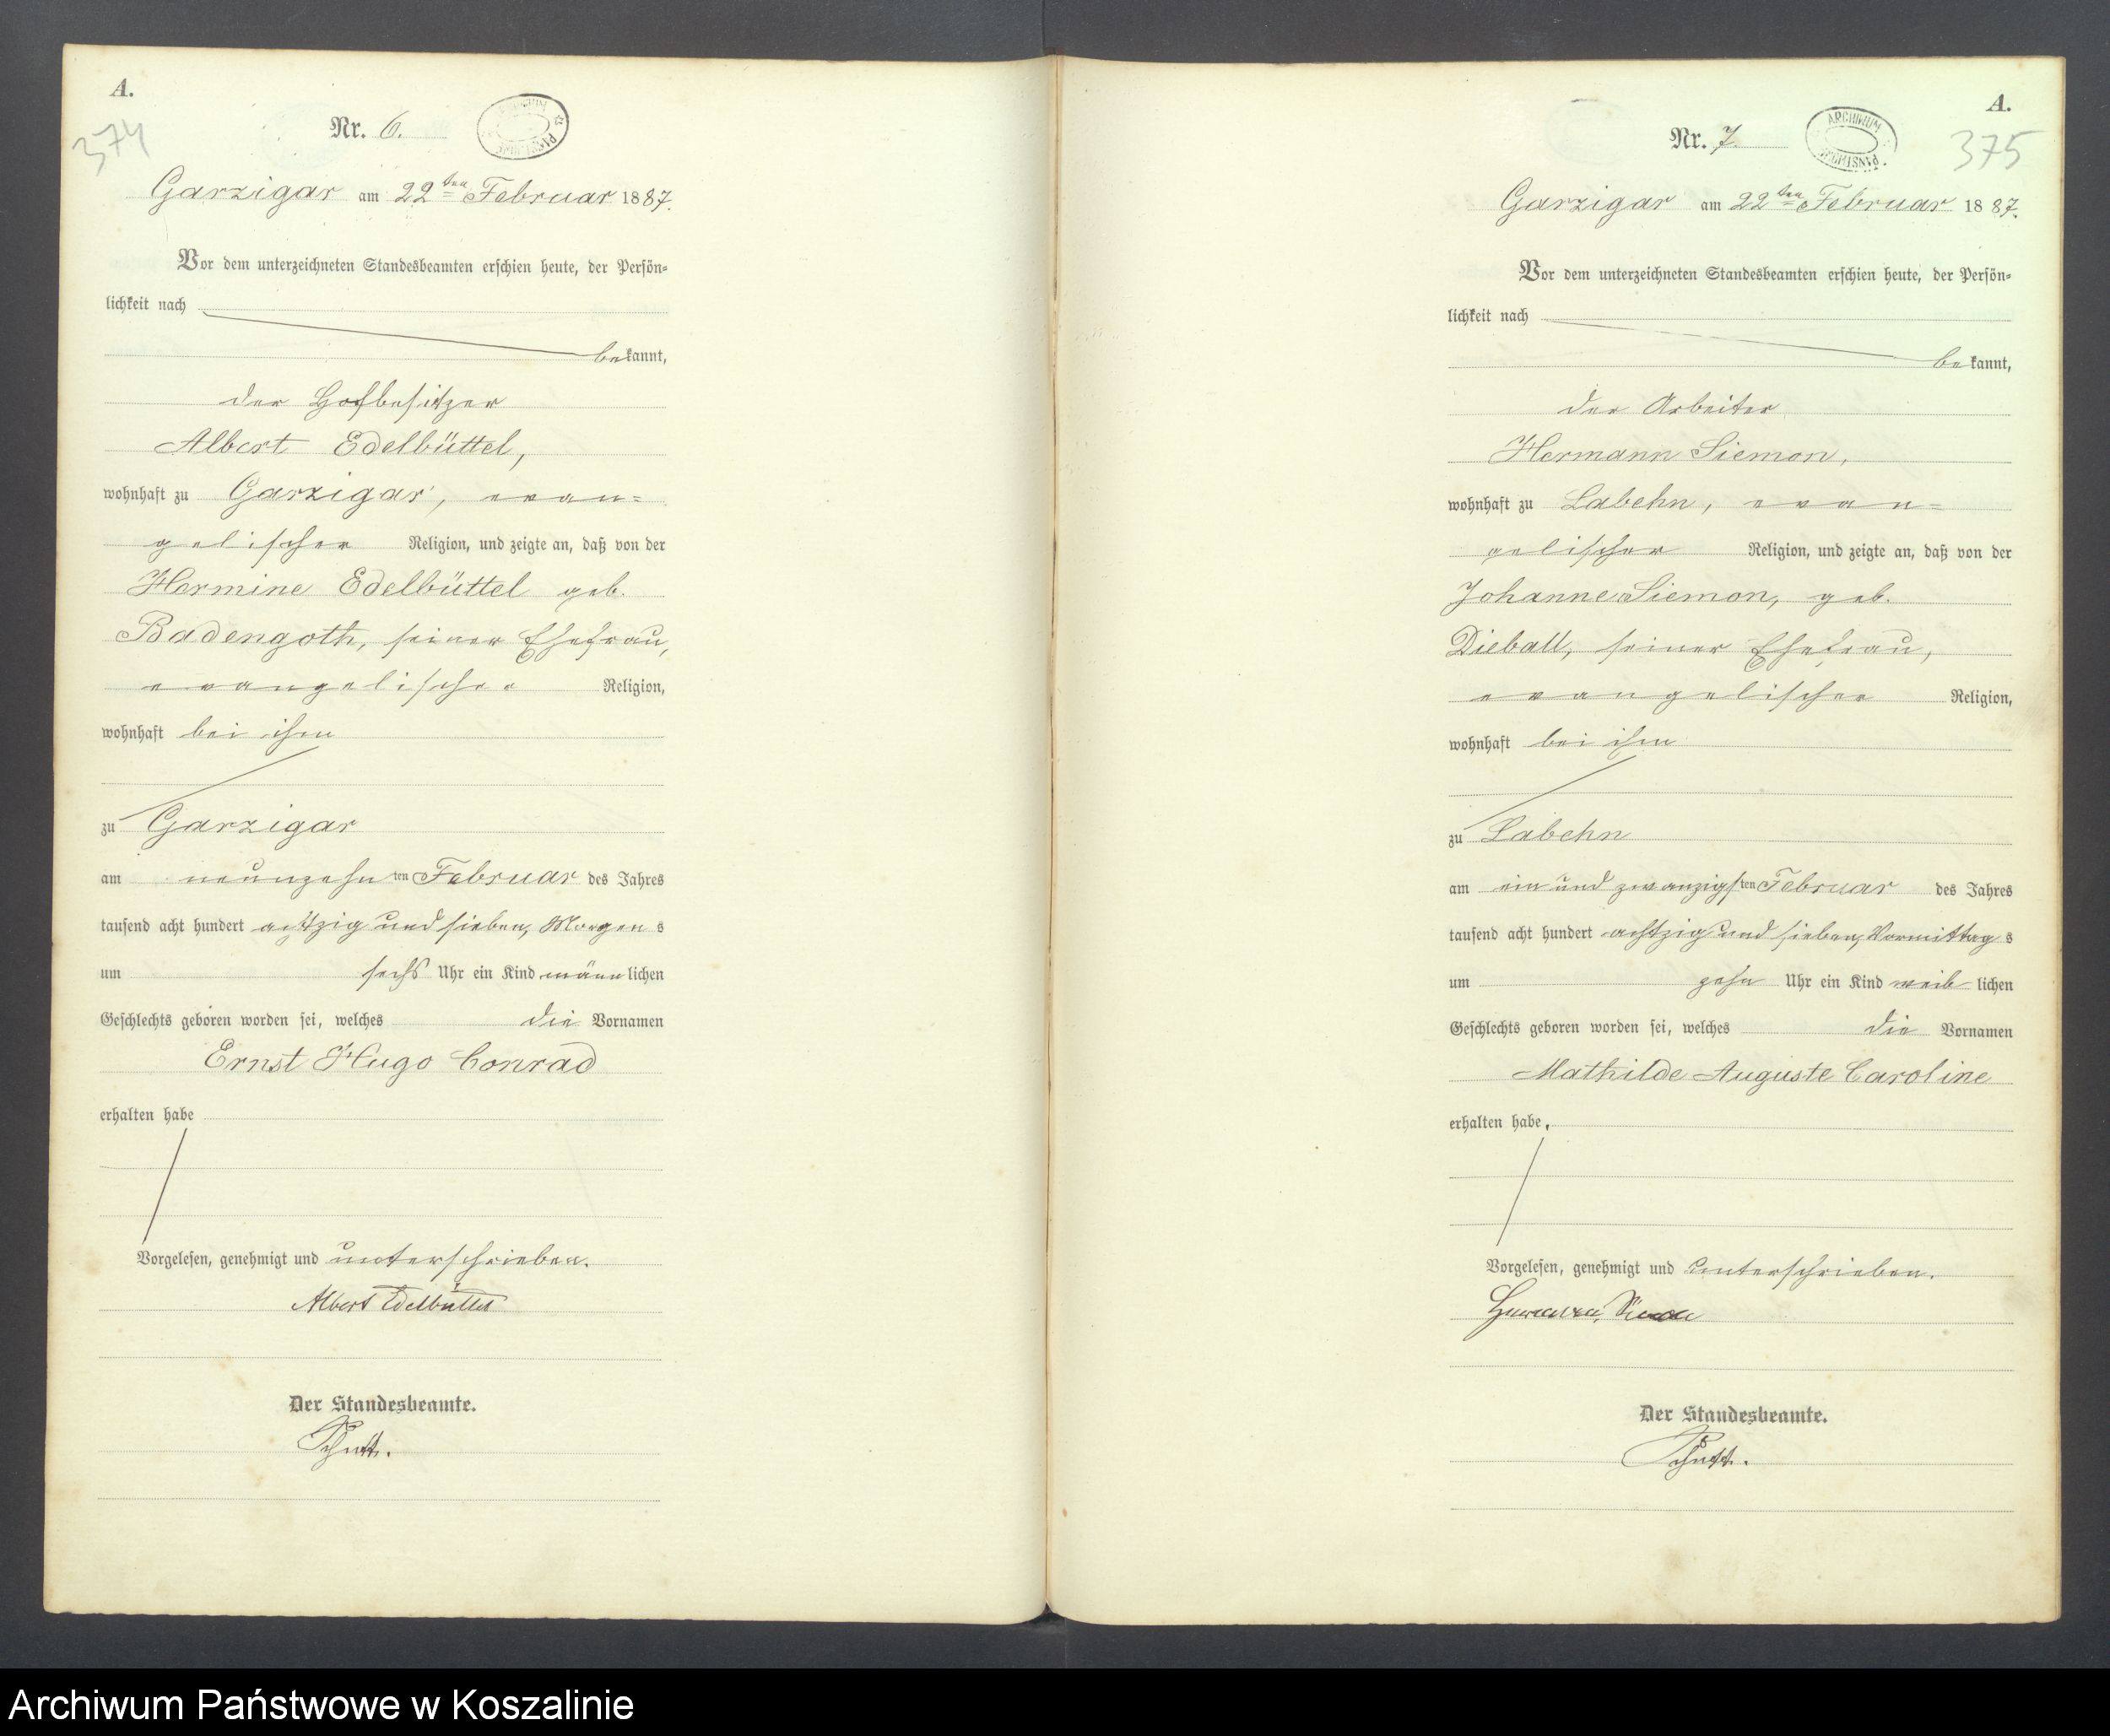 A.
374
Nr. 6.
Garzigar am 22ten Februar 1887.
Vor dem unterzeichneten Standesbeamten erschien heute, der Persön=
lichkeit nach
bekannt,
der Hofbesitzer
Albert Edelbüttel,
wohnhaft zu Garzigar, evan=
gelischer Religion, und zeigte an, daß von der
Hermine Edelbüttel geb.
Badengoth, seiner Ehefrau,
evangelischer Religion,
wohnhaft bei ihm
zu Garzigar
am neunzehnten Februar des Jahres
tausend acht hundert achtzig und sieben, Morgens
um sechs Uhr ein Kind männlichen
Geschlechts geboren worden sei, welches die Vornamen
Ernst Hugo Conrad
erhalten habe
Vorgelesen, genehmigt und unterschrieben.
Albert Edelbüttel
Der Standesbeamte.
A.
ARCHIWUM PAŃSTWOWE
375
Nr. 7.
Garzigar am 22ten Februar 1887.
Vor dem unterzeichneten Standesbeamten erschien heute, der Persön=
lichkeit nach
bekannt,
der Arbeiter
Hermann Siemon,
wohnhaft zu Labehn, evan=
gelischer Religion, und zeigte an, daß von der
Johanne Siemon, geb.
Dieball, seiner Ehefrau,
evangelischer Religion,
wohnhaft bei ihm
zu Labehn
am ein und zwanzigsten Februar des Jahres
tausend acht hundert achtzig und sieben, Vormittags
um zehn Uhr ein Kind weiblichen
Geschlechts geboren worden sei, welches die Vornamen
Mathilde Auguste Caroline
erhalten habe.
Vorgelesen, genehmigt und unterschrieben.
Hermann Simon
Der Standesbeamte.
Archiwum Państwowe w Koszalinie